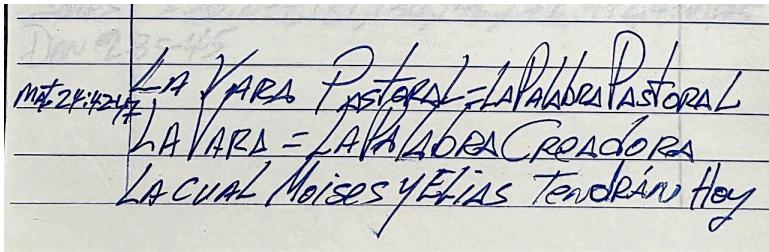 Dan 2:35-45
Mat. 24:42-47 La Vara Pastoral = La Palabra Pastoral
La Vara = La Palabra Creadora
La cual Moises y Elias Tendrán Hoy